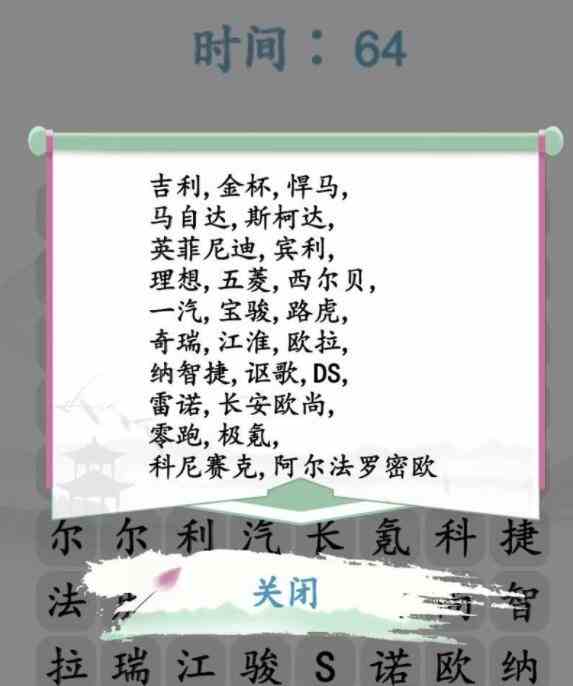 时间：64
吉利,金杯,悍马,
马自达,斯柯达,
英菲尼迪,宾利,
理想,五菱,西尔贝,
一汽,宝骏,路虎,
奇瑞,江淮,欧拉,
纳智捷,讴歌,DS,
雷诺,长安欧尚,
零跑,极氪,
科尼赛克,阿尔法罗密欧
尔 尔 利 汽 长 氪 科 捷
法 智
关闭
拉 瑞 江 骏 S 诺 欧 纳